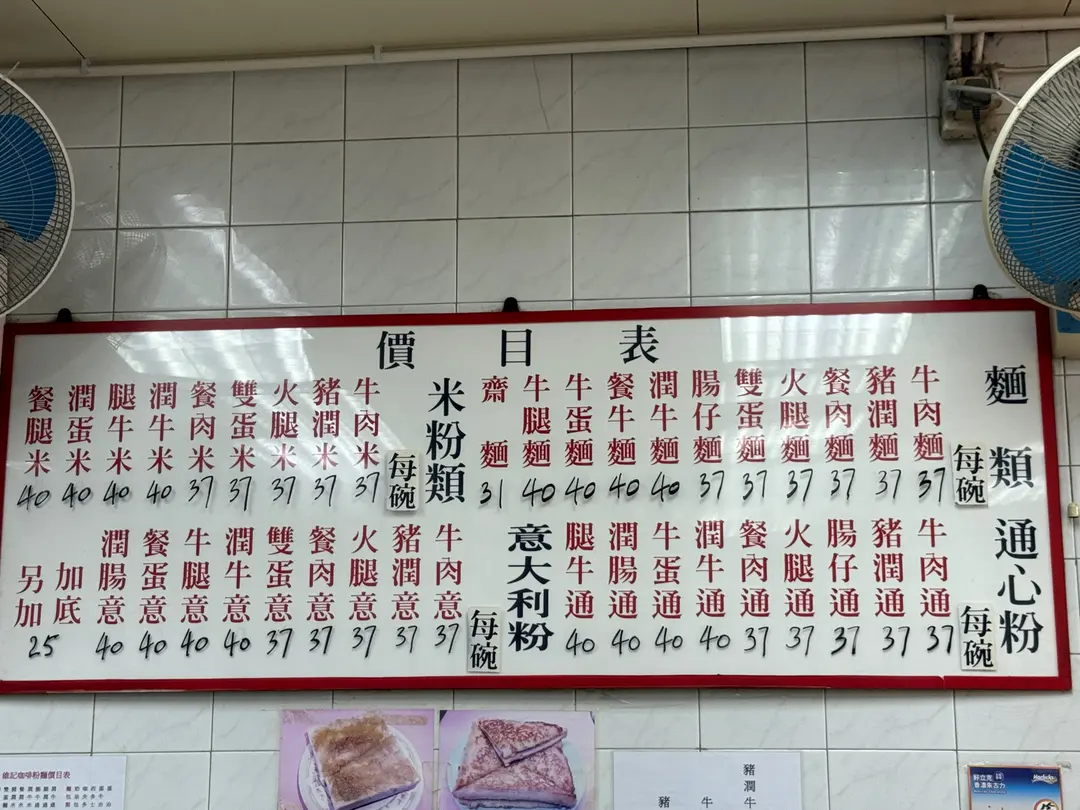 價目表
麵類
每碗
牛肉麵 37
豬潤麵 37
餐肉麵 37
火腿麵 37
雙蛋麵 37
腸仔麵 37
潤牛麵 40
餐牛麵 40
牛蛋麵 40
牛腿麵 40
齋麵 31
米粉類
每碗
牛肉米 37
豬潤米 37
火腿米 37
雙蛋米 37
餐肉米 37
潤牛米 40
腿牛米 40
潤蛋米 40
餐腿米 40
通心粉
每碗
牛肉通 37
豬潤通 37
腸仔通 37
火腿通 37
餐肉通 37
潤牛通 40
牛蛋通 40
潤腸通 40
腿牛通 40
意大利粉
每碗
牛肉意 37
豬潤意 37
火腿意 37
餐肉意 37
雙蛋意 37
潤牛意 40
牛腿意 40
餐蛋意 40
潤腸意 40
加底
另加
25
維記咖啡粉麵價目表
豬潤牛
牛
豬
好立克
香濃朱古力
Horlicks